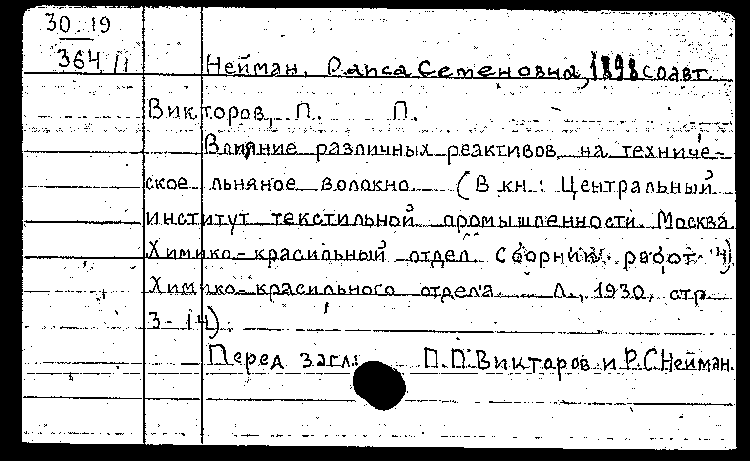 30 19
364/1
Нейман, Раиса Семеновна, 1898 соавт.
Викторов, П. П.
Влияние различных реактивов на техниче-
ское льняное волокно (В кн.: Центральный
институт текстильной промышленности. Москва.
Химико-красильный отдел. Сборник работ
Химико-красильного отдела. Л., 1930, стр.
3-14).
Перед загл: П.П.Викторов и Р.С.Нейман.